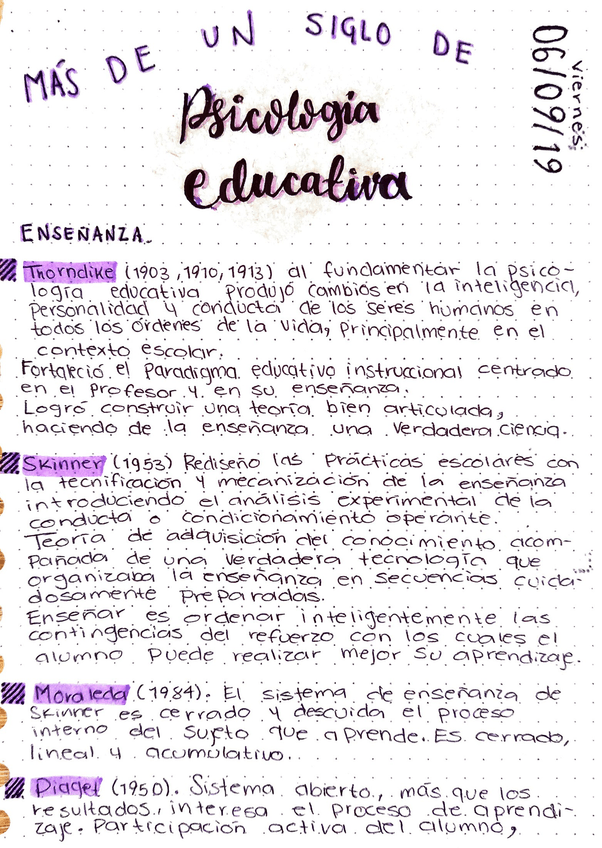 MÁS DE UN SIGLO DE
Psicología
educativa
Viernes,
06/09/19
ENSEÑANZA.
Thorndike (1903, 1910, 1913) al fundamentar la psico-
logía educativa produjo cambios en la inteligencia,
personalidad y conducta de los seres humanos en
todos los órdenes de la vida, principalmente en el
contexto escolar.
Fortaleció el paradigma educativo instruccional centrado
en el profesor y en su enseñanza.
Logró construir una teoría bien articulada,
haciendo de la enseñanza una verdadera ciencia.
Skinner (1953) Rediseño las prácticas escolares con
la tecnificación y mecanización de la enseñanza
introduciendo el análisis experimental de la
conducta o condicionamiento operante.
Teoría de adquisición del conocimiento acom-
pañada de una verdadera tecnología que
organizaba la enseñanza en secuencias cuida-
dosamente preparadas.
Enseñar es ordenar inteligentemente las
contingencias del refuerzo con los cuales el
alumno puede realizar mejor su aprendizaje.
Moraleda (1984). El sistema de enseñanza de
Skinner es cerrado y descuida el proceso
interno del sujeto que aprende. Es cerrado,
lineal y acumulativo.
Piaget (1950). Sistema abierto, más que los
resultados, interesa el proceso de aprendi-
zaje. Participación activa del alumno,